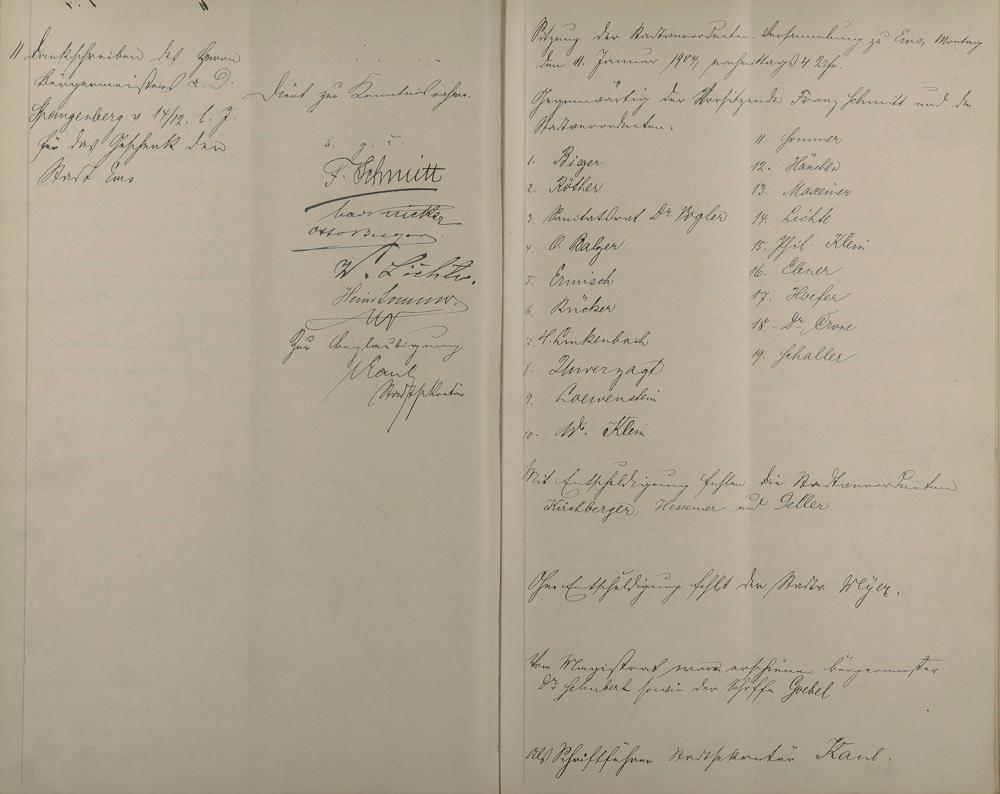 11 Dankschreiben des Herrn
Bürgermeisters a. D.
Spangenberg v 14/12. l. J.
für das Geschenk der
Stadt Ems
Dient zur Kenntnisnahme.
v. g. u.
F. Schmitt
Otto Bieger
W. Lichte.
Heinr Sommer.
Zur Beglaubigung
Kaul
Stadtsekretär
Sitzung der Stadtverordneten-Versammlung zu Ems, Montag
den 11. Januar 1904, nachmittags 4 Uhr.
Gegenwärtig der Vorsitzende Franz Schmitt und die
Stadtverordneten:
1. Bieger
2. Röther
3. Sanitätsrat Dr Vogler
4. O. Balzer
5. Ermisch
6. Rücker
7. H. Linkenbach
8. Unverzagt
9. Loewenstein
10. W. Klein
11 Sommer
12. Häncher
13. Maxeiner
14. Lichte
15. Phil. Klein
16. Ebner
17. Hoefer
18. Dr. Crone
19. Schaller
Mit Entschuldigung fehlen die Stadtverordneten
Kirchberger, Hessemer und Deller
Ohne Entschuldigung fehlt der Stadtv. Meyer.
Vom Magistrat waren erschienen Bürgermeister
Dr Schubert sowie der Schöffe Goebel
Als Schriftführer Stadtsekretär Kaul.